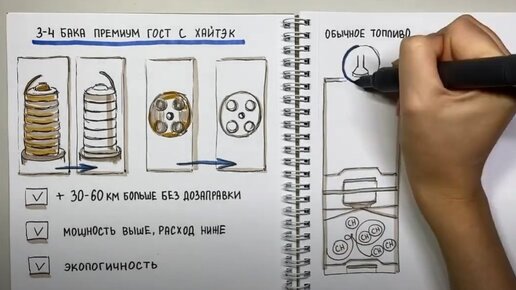 3-4 БАКА ПРЕМИУМ ГОСТ С ХАЙТЭК
+ 30-60 КМ БОЛЬШЕ БЕЗ ДОЗАПРАВКИ
МОЩНОСТЬ ВЫШЕ, РАСХОД НИЖЕ
ЭКОЛОГИЧНОСТЬ
ОБЫЧНОЕ ТОПЛИВО
CH
CH
CH
CH
CH